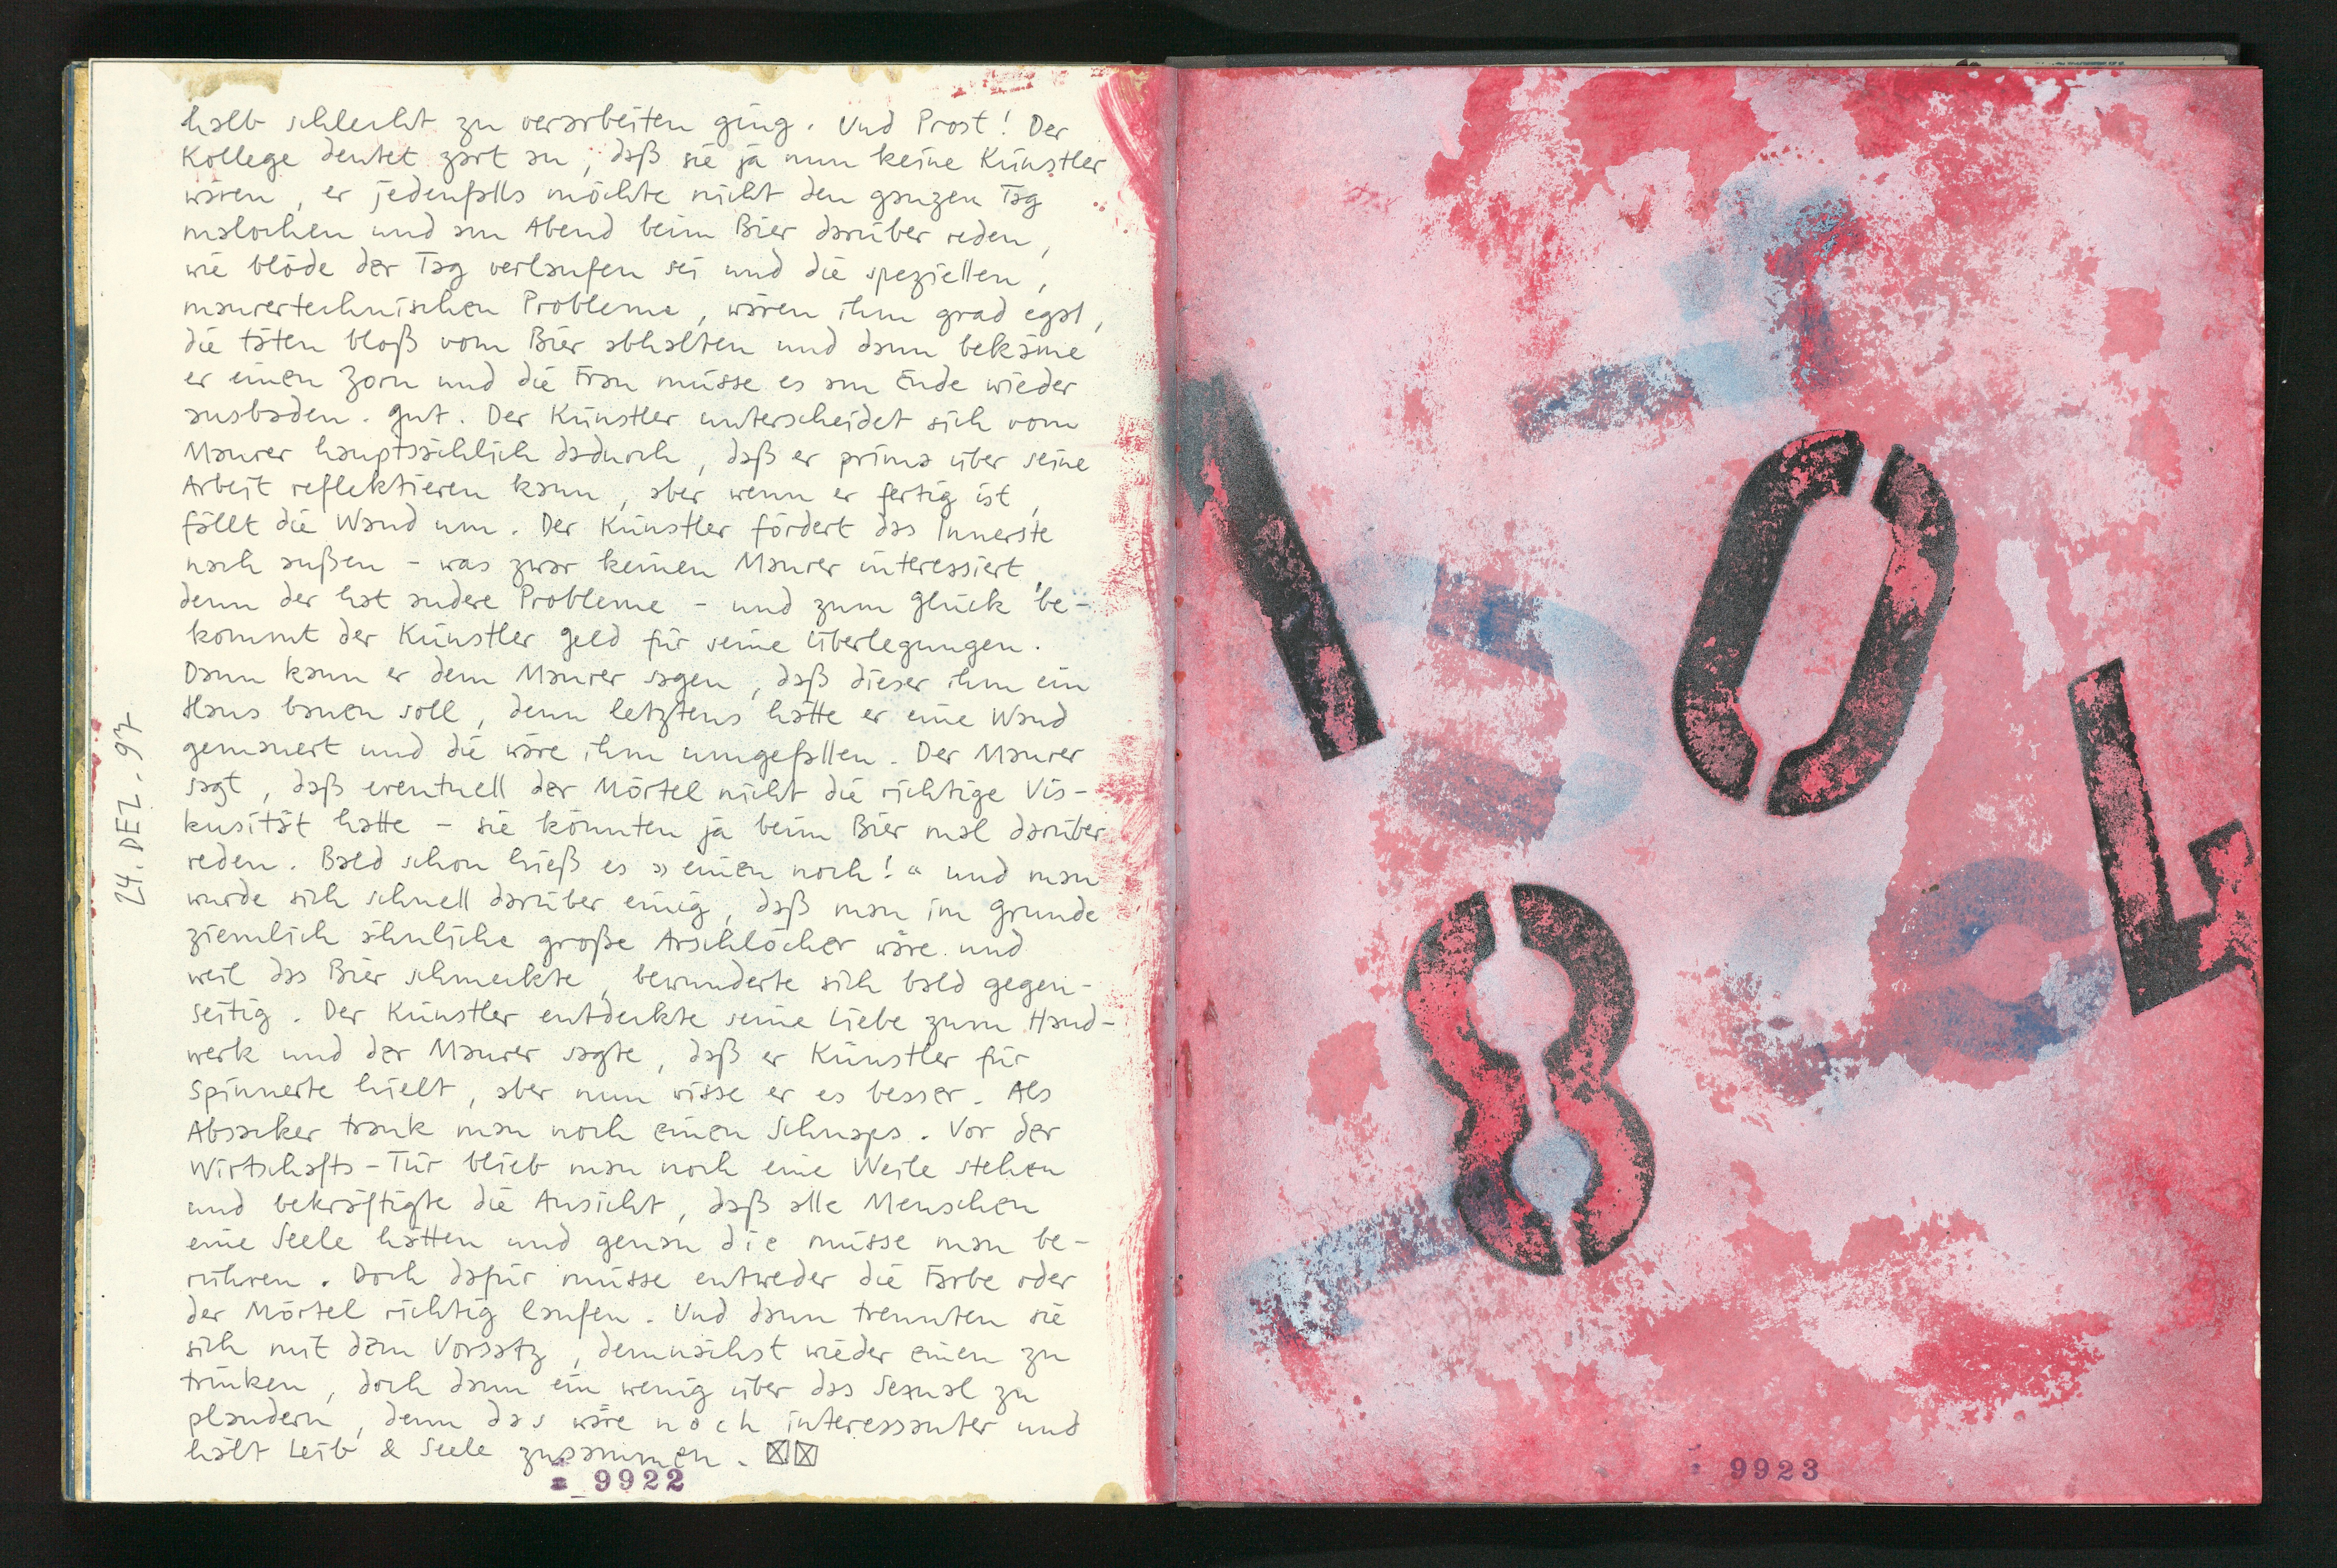 halb schlecht zu verarbeiten ging. Und Prost! Der
Kollege deutet zart an, daß sie ja nun keine Künstler
wären, er jedenfalls möchte nicht den ganzen Tag
malochen und am Abend beim Bier darüber reden,
wie blöde der Tag verlaufen sei und die speziellen,
maurertechnischen Probleme, wären ihm grad egal,
die täten bloß vom Bier abhalten und dann bekäme
er einen Zorn und die Frau müsse es am Ende wieder
ausbaden. Gut. Der Künstler unterscheidet sich vom
Maurer hauptsächlich dadurch, daß er prima über seine
Arbeit reflektieren kann, aber wenn er fertig ist,
fällt die Wand um. Der Künstler fördert das Innerste
nach außen – was zwar keinen Maurer interessiert,
denn der hat andere Probleme – und zum Glück be-
kommt der Künstler Geld für seine Überlegungen.
Dann kann er dem Maurer sagen, daß dieser ihm ein
Haus bauen soll, denn letztens hätte er eine Wand
gemauert und die wäre ihm umgefallen. Der Maurer
sagt, daß eventuell der Mörtel nicht die richtige Vis-
kusität hatte – sie könnten ja beim Bier mal darüber
reden. Bald schon hieß es »einen noch!« und man
wurde sich schnell darüber einig, daß man im Grunde
ziemlich ähnliche große Arschlöcher wäre und
weil das Bier schmeckte, bewunderte sich bald gegen-
seitig. Der Künstler entdeckte seine Liebe zum Hand-
werk und der Maurer sagte, daß er Künstler für
Spinnerte hielt, aber nun wisse er es besser. Als
Absacker trank man noch einen Schnaps. Vor der
Wirtschafts-Tür blieb man noch eine Weile stehen
und bekräftigte die Ansicht, daß alle Menschen
eine Seele hätten und genau die müsse man be-
rühren. Doch dafür müsse entweder die Farbe oder
der Mörtel richtig laufen. Und dann trennten sie
sich mit dem Vorsatz, demnächst wieder einen zu
trinken, doch dann ein wenig über das Sexual zu
plaudern, denn das wäre noch interessanter und
hält Leib & Seele zusammen.
24. DEZ. 97
9922
1
0
4
8
9923